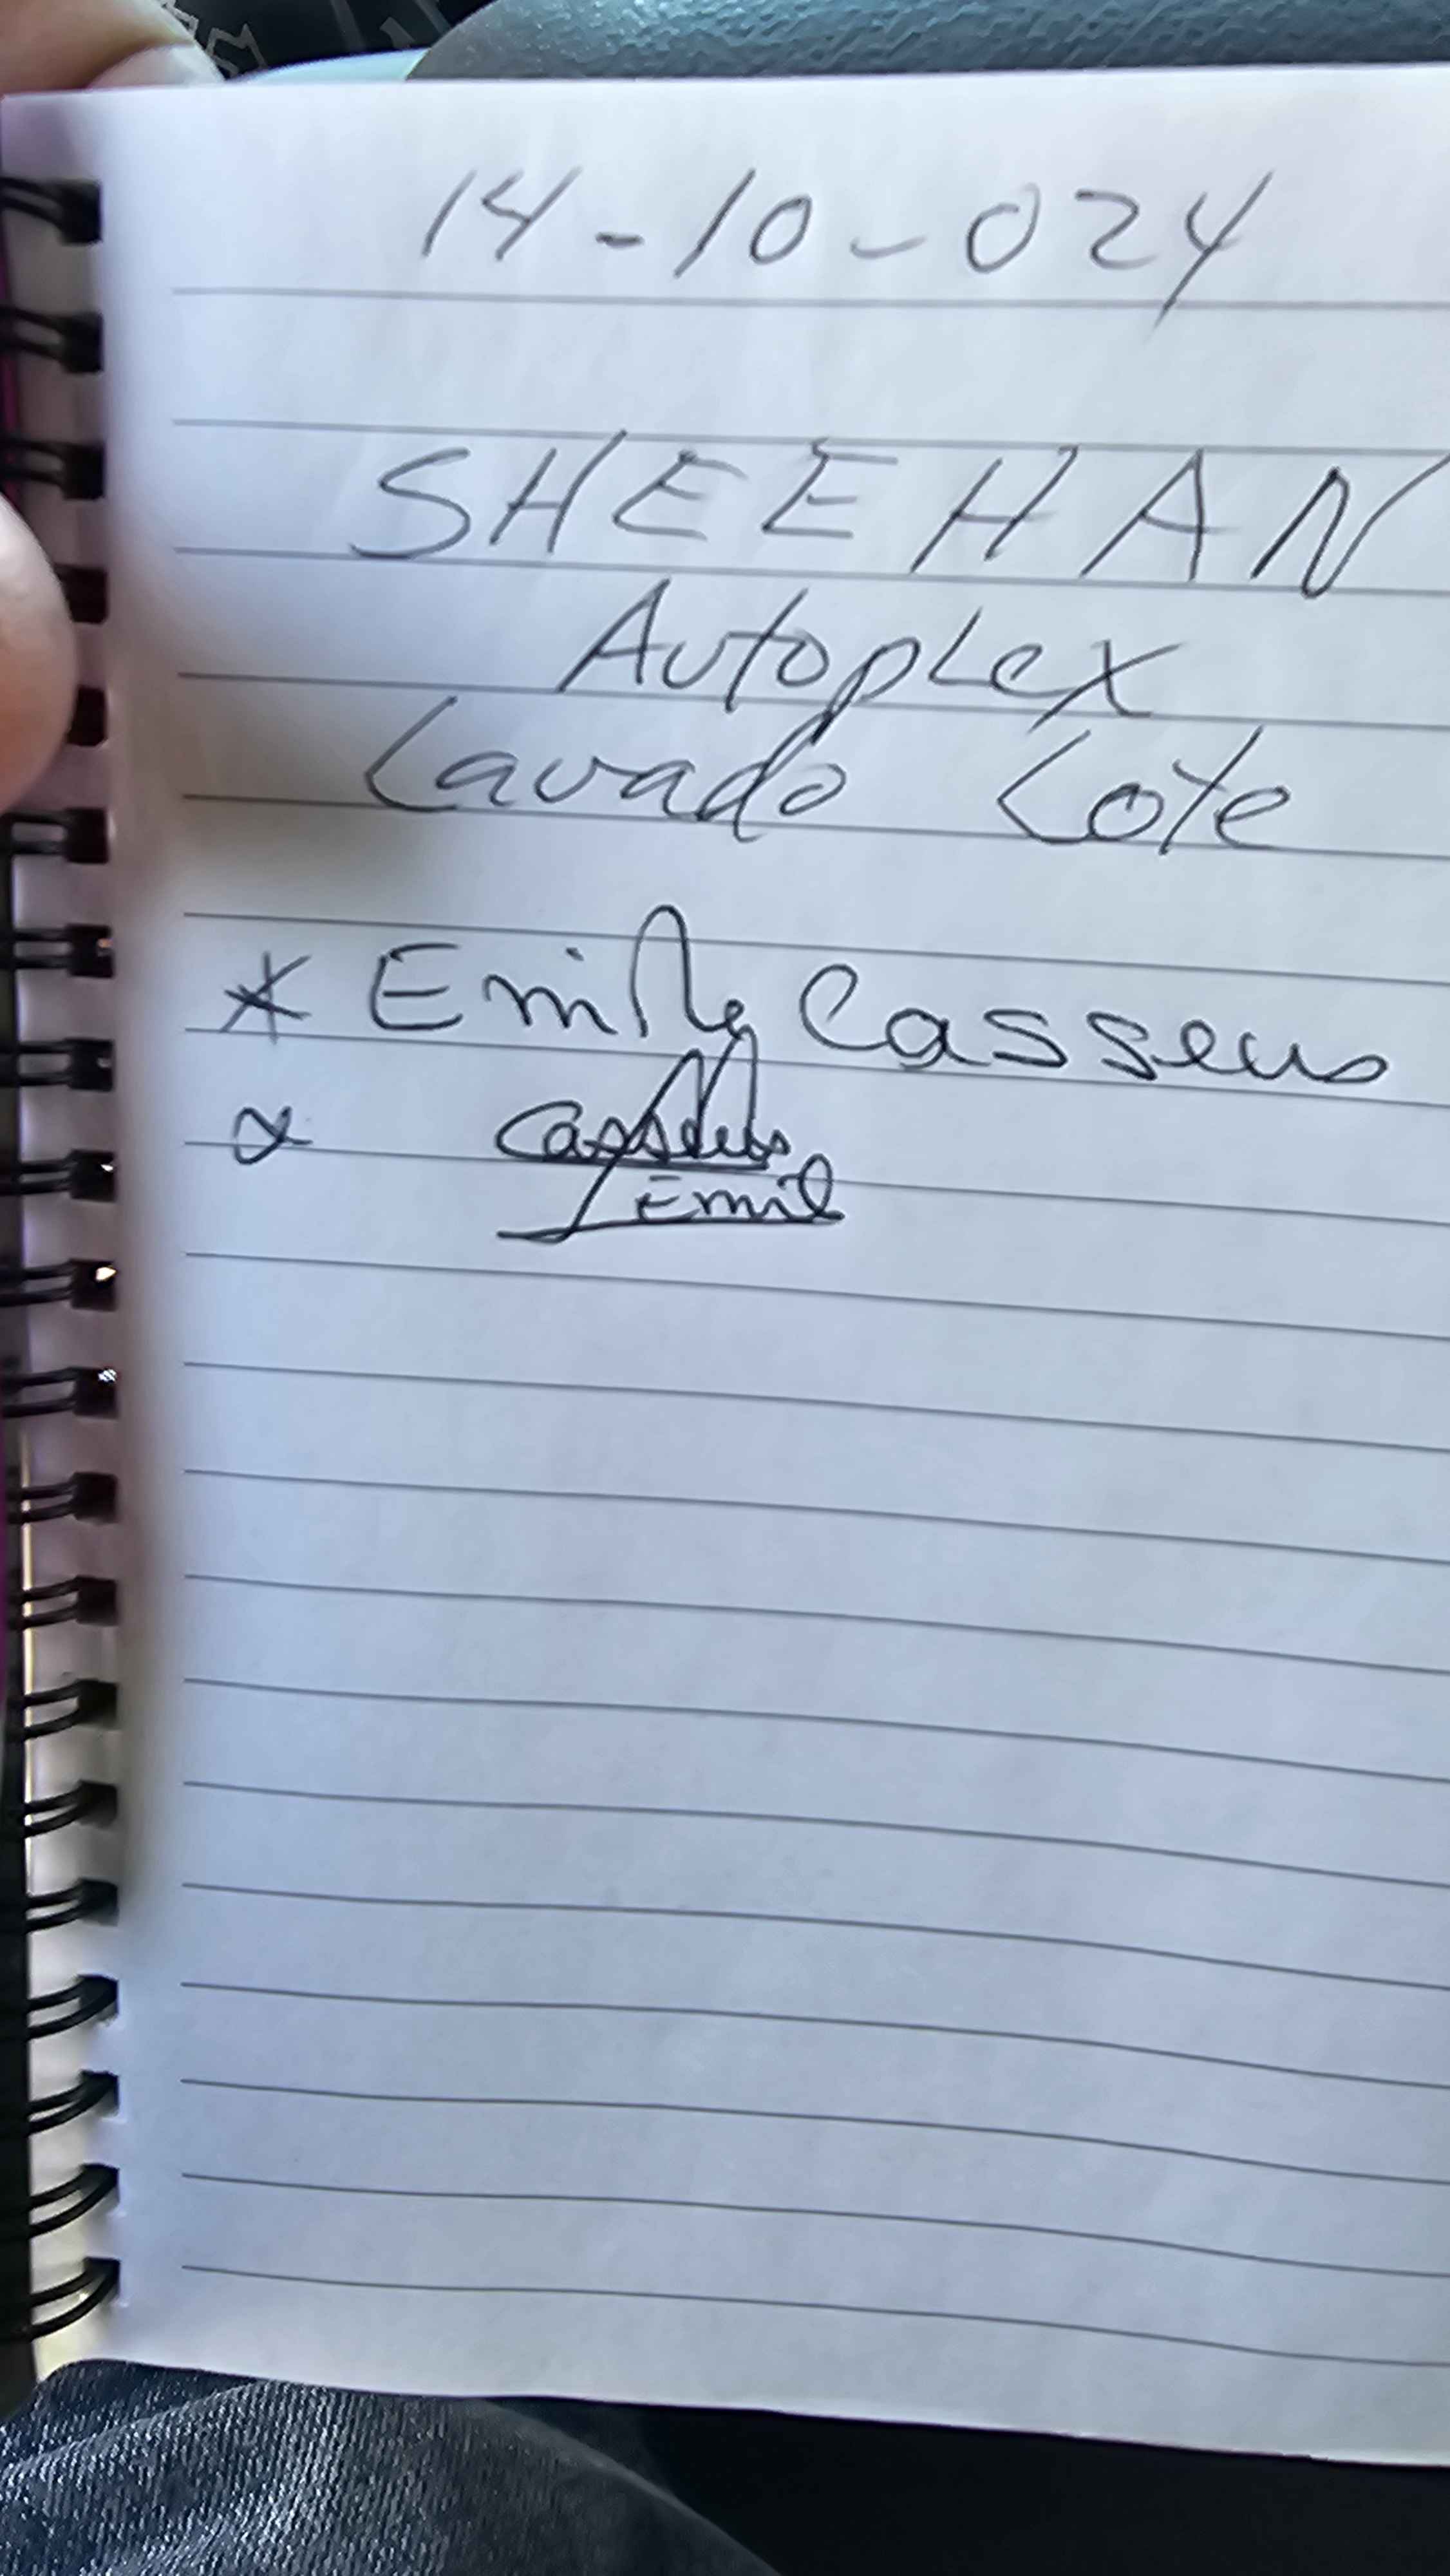 14-10-024
SHEEHAN
Autoplex
Lavado Lote
* Emile Casseus
x Casseus
Emile